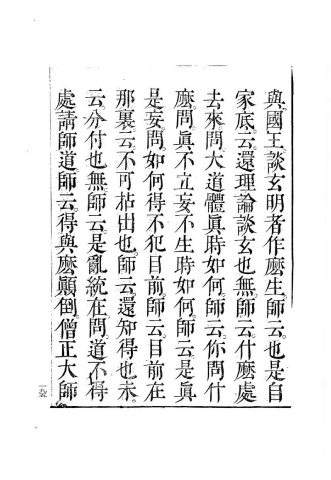 與國王談玄明者作麽生師云也是自
家底云還理論談玄也無師云什麽處
去來問大道體眞時如何師云你問什
麽問眞不立妄不生時如何師云是眞
是妄問如何得不犯目前師云目前在
那裏云不可枯出也師云還知得也未
云分付也無師云是亂統在問道不得
處請師道師云得與麽顚倒僧正大師